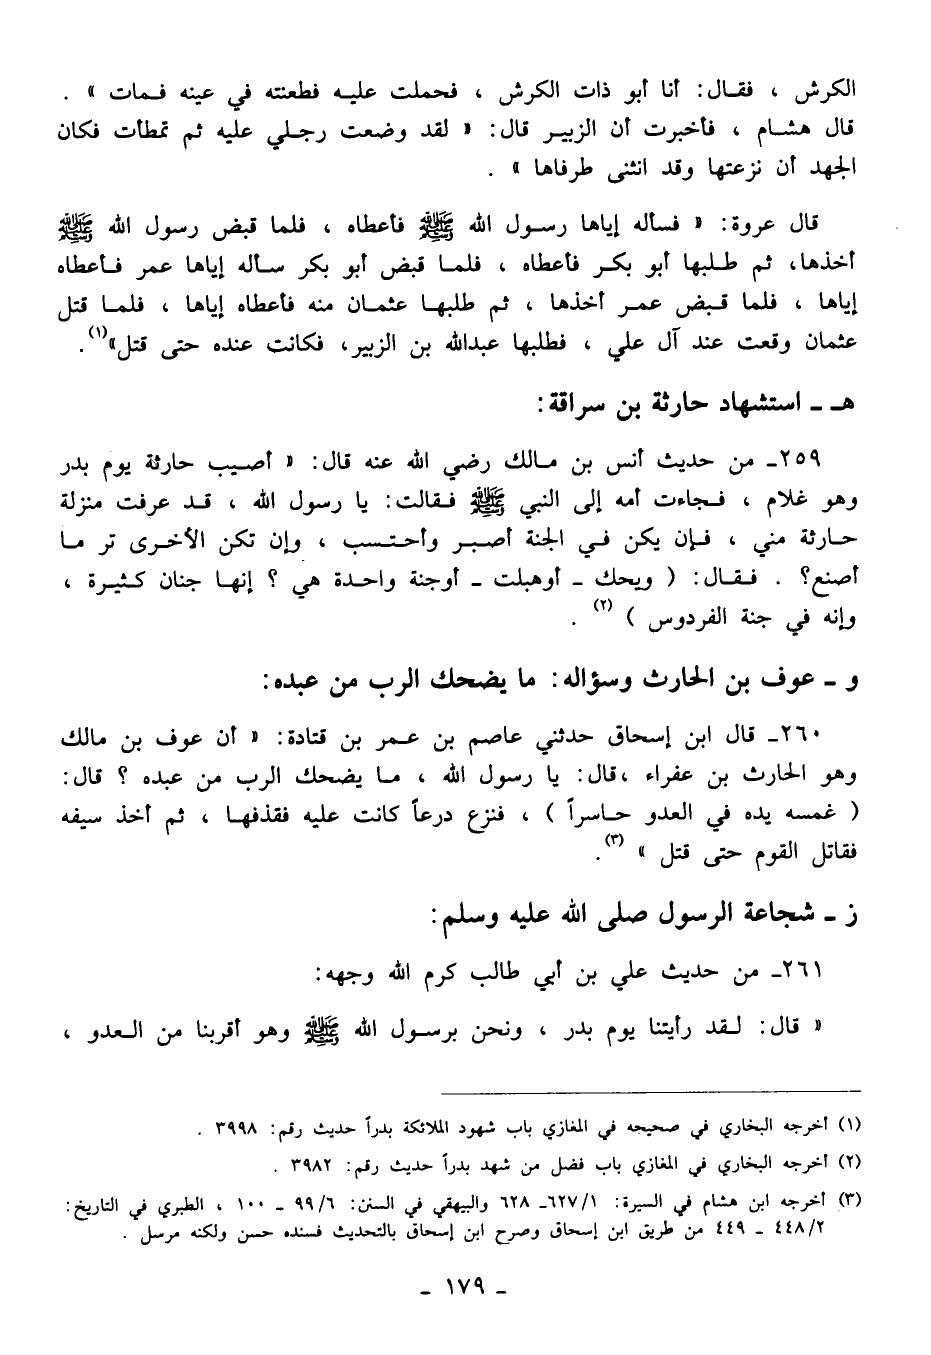 الكرش ، فقال: أنا أبو ذات الكرش ، فحملت عليه فطعنته في عينه فمات » .
قال هشام ، فأخبرت أن الزبير قال: « لقد وضعت رجلي عليه ثم تمطأت فكان
الجهد أن نزعتها وقد انثنى طرفاها » .
قال عروة: « فسأله إياها رسول الله ﷺ فأعطاه ، فلما قبض رسول الله ﷺ
أخذها، ثم طلبها أبو بكر فأعطاه ، فلما قبض أبو بكر سأله إياها عمر فأعطاه
إياها ، فلما قبض عمر أخذها ، ثم طلبها عثمان منه فأعطاه إياها ، فلما قتل
عثمان وقعت عند آل علي ، فطلبها عبدالله بن الزبير، فكانت عنده حتى قتل»(١).
هـ ـ استشهاد حارثة بن سراقة:
٢٥٩ـ من حديث أنس بن مالك رضي الله عنه قال: « أصيب حارثة يوم بدر
وهو غلام ، فجاءت أمه إلى النبي ﷺ فقالت: يا رسول الله ، قد عرفت منزلة
حارثة مني ، فإن يكن في الجنة أصبر وأحتسب ، وإن تكن الأخرى تر ما
أصنع؟ . فقال: ( ويحك ـ أوهبلت ـ أوجنة واحدة هي ؟ إنها جنان كثيرة ،
وإنه في جنة الفردوس ) (٢) .
و ـ عوف بن الحارث وسؤاله: ما يضحك الرب من عبده:
٢٦٠ـ قال ابن إسحاق حدثني عاصم بن عمر بن قتادة: « أن عوف بن مالك
وهو الحارث بن عفراء ،قال: يا رسول الله ، ما يضحك الرب من عبده ؟ قال:
( غمسه يده في العدو حاسراً ) ، فنزع درعاً كانت عليه فقذفها ، ثم أخذ سيفه
فقاتل القوم حتى قتل » (٣).
ز ـ شجاعة الرسول صلى الله عليه وسلم:
٢٦١ـ من حديث علي بن أبي طالب كرم الله وجهه:
« قال: لقد رأيتنا يوم بدر ، ونحن برسول الله ﷺ وهو أقربنا من العدو ،
(١) أخرجه البخاري في صحيحه في المغازي باب شهود الملائكة بدراً حديث رقم: ٣٩٩٨ .
(٢) أخرجه البخاري في المغازي باب فضل من شهد بدراً حديث رقم: ٣٩٨٢ .
(٣) أخرجه ابن هشام في السيرة: ٦٢٧/١ـ ٦٢٨ والبيهقي في السنن: ٩٩/٦ ـ ١٠٠ ، الطبري في التاريخ:
٤٤٨/٢ ـ ٤٤٩ من طريق ابن إسحاق وصرح ابن إسحاق بالتحديث فسنده حسن ولكنه مرسل .
ـ ١٧٩ ـ